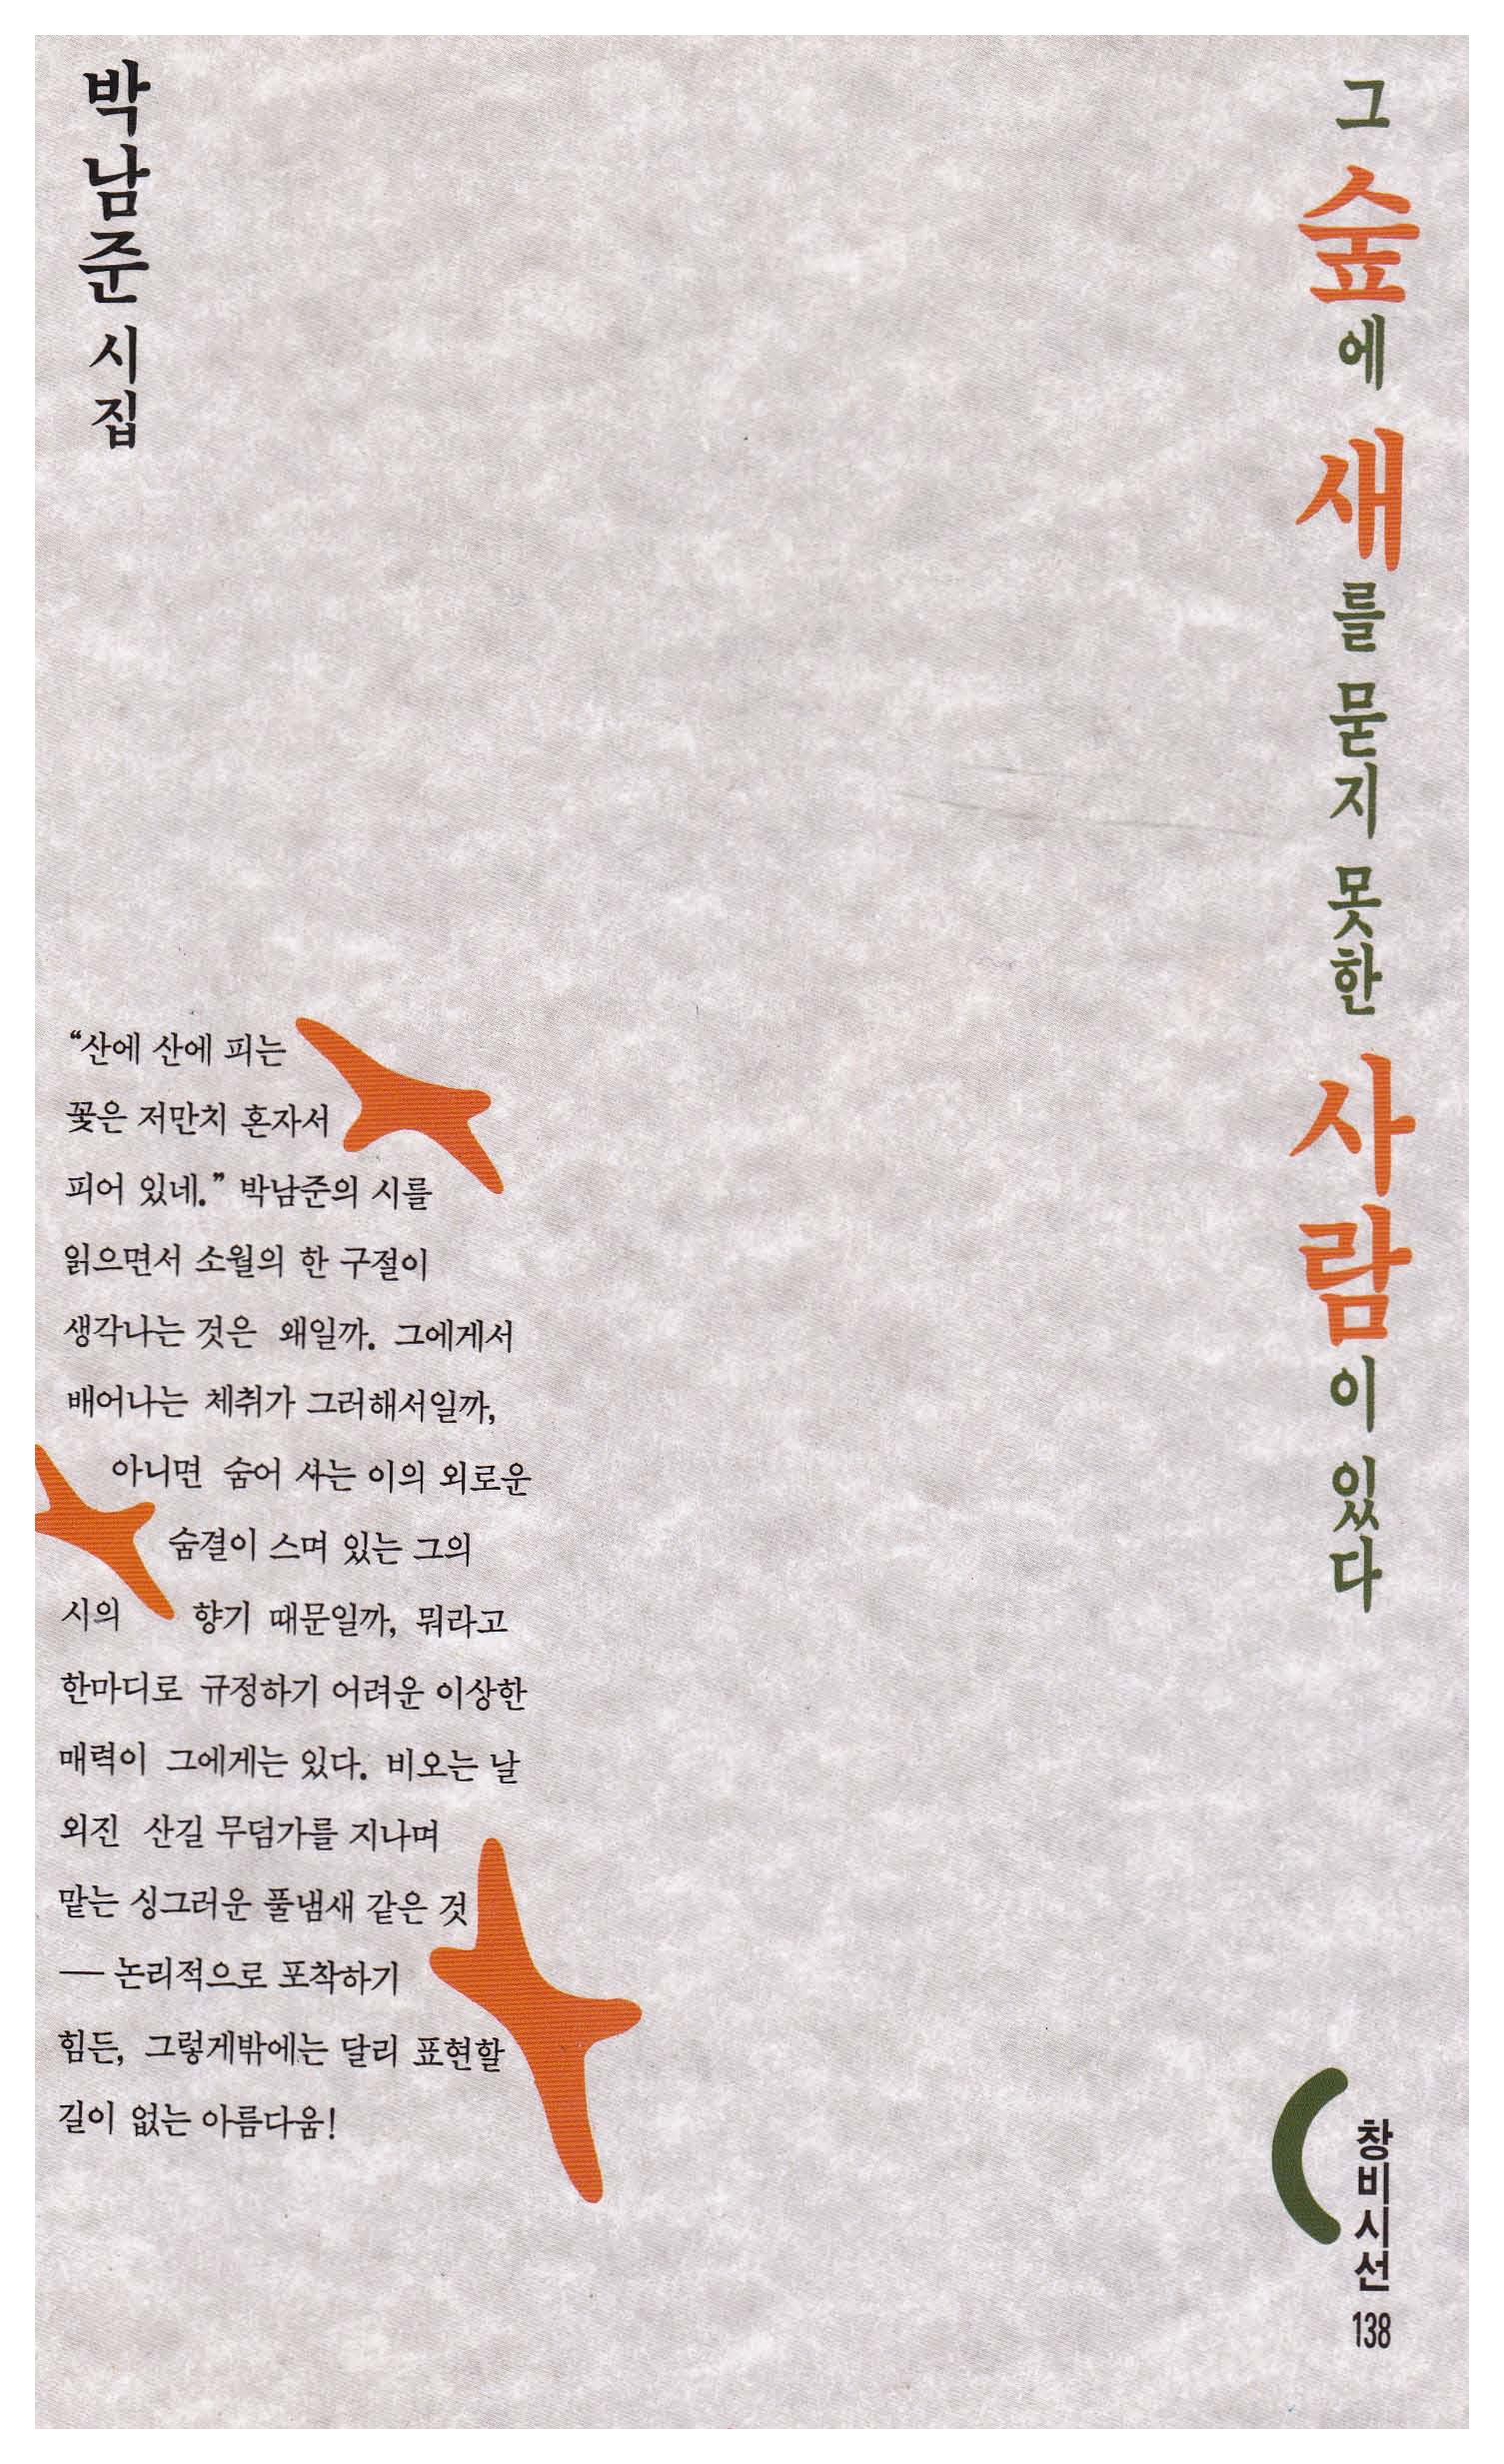 그 숲에 새를 묻지 못한 사람이 있다
박남준 시집
“산에 산에 피는
꽃은 저만치 혼자서
피어 있네.” 박남준의 시를
읽으면서 소월의 한 구절이
생각나는 것은 왜일까. 그에게서
배어나는 체취가 그러해서일까,
아니면 숨어 사는 이의 외로운
숨결이 스며 있는 그의
시의 향기 때문일까, 뭐라고
한마디로 규정하기 어려운 이상한
매력이 그에게는 있다. 비오는 날
외진 산길 무덤가를 지나며
맡는 싱그러운 풀냄새 같은 것
— 논리적으로 포착하기
힘든, 그렇게밖에는 달리 표현할
길이 없는 아름다움!
창비시선
138